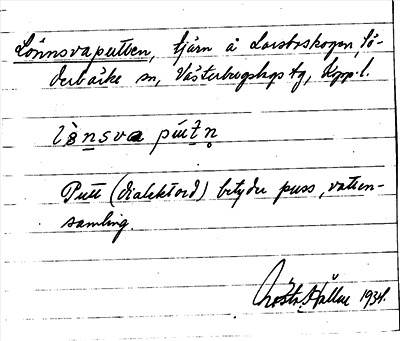 Lönnsvaputten, tjärn å Larsboskogen, Sö-
derbärke sn, Västerbergslags tg, Kopp. l.
lònsva pút n
Putt (dialektord) betyder puss, vatten-
samling.
Gösta Hallme 1934.